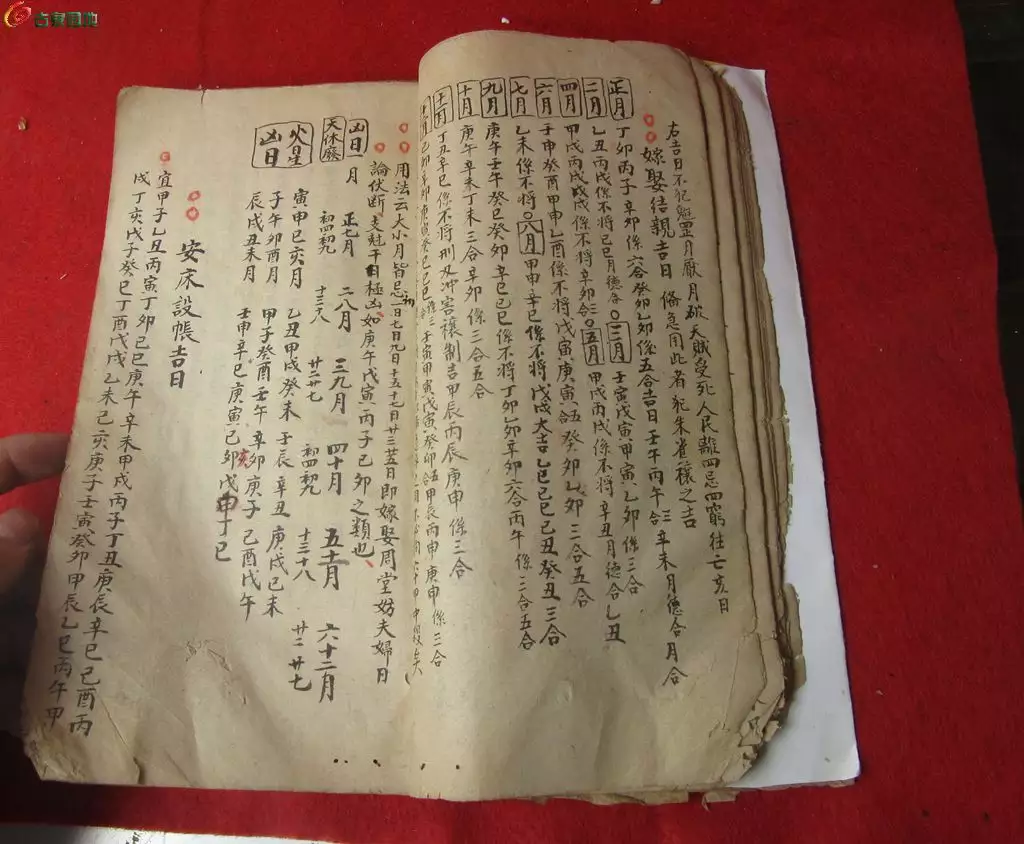 右吉日不犯魁罡月厭月破天賊受死人民離四忌四窮往亡亥日
嫁娶結親吉日 俻急用此者 犯朱雀禳之吉
正月 丁卯丙子辛卯係六合癸卯乙卯係五合吉日壬午丙午三合辛未月德合月合
二月 乙丑丙戌係不將己巳月德合 三月 壬寅戊寅甲寅乙卯係三合
四月 甲戌丙戌戊戌係不將辛卯合 五月 甲戌丙戌係不將辛丑月德合乙丑
六月 壬申癸酉甲申乙酉係不將戊寅庚寅合五癸卯乙卯三合五合
七月 乙未係不將 八月 甲申辛巳係不將戊戌大吉乙巳己巳己丑癸丑三合
九月 庚午壬午癸巳癸卯辛巳己巳係不將丁卯乙卯辛卯六合丙午係三合五合
十月 庚午辛未丁未三合辛卯係三合五合
十一月 丁丑辛巳係不將刑及冲害禳制吉甲辰丙辰庚申係三合
用法云大小月皆忌初一日七日九日十五十七日廿三廿五日即嫁娶周堂妨夫婦日
論伏断支尅干日極凶如庚午戊寅丙子己卯之類也
凶日一月 正七月 二八月 三九月 四十月 五十一月 六十二月
天休廢 初四初九 十三十八 廿二廿七 初四初九 十三十八 廿二廿七
火星凶日 寅申巳亥月 乙丑甲戌癸未壬辰辛丑庚戌己未
子午卯酉月 甲子癸酉壬午辛卯庚子己酉戊午
辰戌丑未月 壬申辛巳庚寅己亥戊申丁巳
安床設帳吉日
宜甲子乙丑丙寅丁卯己巳庚午辛未甲戌丙子丁丑庚辰辛巳己酉丙
戌丁亥戊子癸巳丁酉戊戌乙未己亥庚子壬寅癸卯甲辰乙巳丙午甲